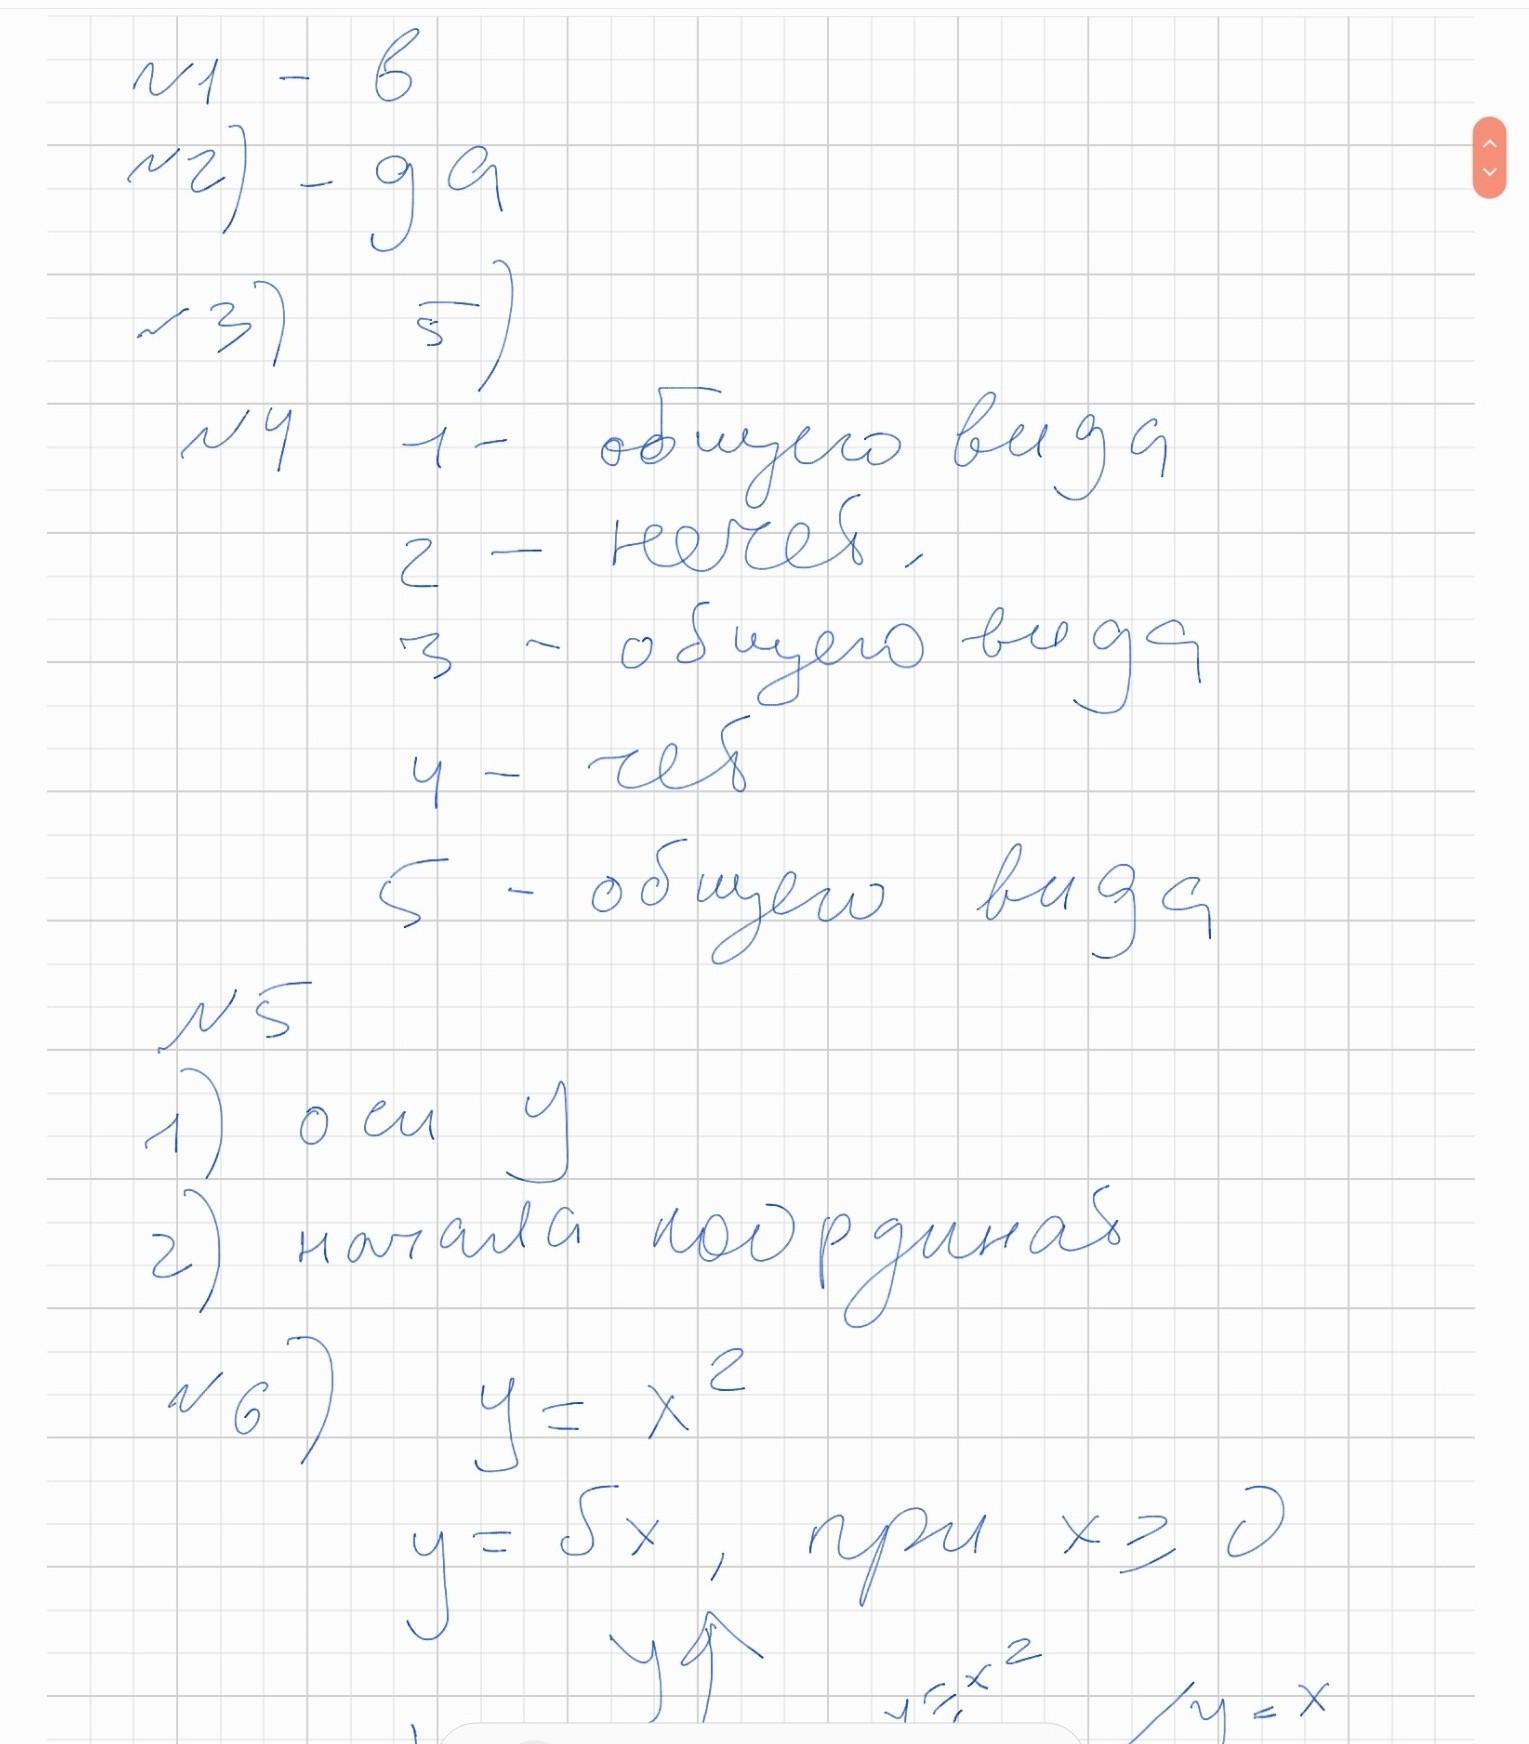 №1 - в
№2) - да
№3) 5)
№4 1 - общего вида
2 - нечет.
3 - общего вида
4 - чет
5 - общего вида
№5
1) оси y
2) начала координат
№6) y = x²
y = 5x, при x ≥ 0
y
y = x² y = x